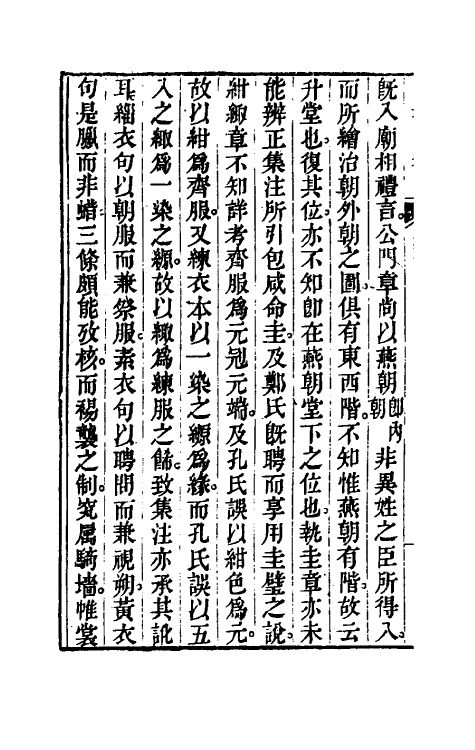 既入廟相禮言公門章尚以燕朝卽内朝非異姓之臣所得入
而所繪治朝外朝之圖俱有東西階不知惟燕朝有階故云
升堂也復其位亦不知卽在燕朝堂下之位也執圭章亦未
能辨正集注所引包咸命圭及鄭氏旣聘而享用圭璧之說
紺緅章不知詳考齊服爲元冠元端及孔氏誤以紺色爲元
故以紺爲齊服又練衣本以一染之縓爲緣而孔氏誤以五
入之緅爲一染之縓故以緅爲練服之飾致集注亦承其訛
耳緇衣句以朝服而兼祭服素衣句以聘問而兼視朔黃衣
句是臘而非蜡三條頗能攷核而裼襲之制究屬騎墻帷裳